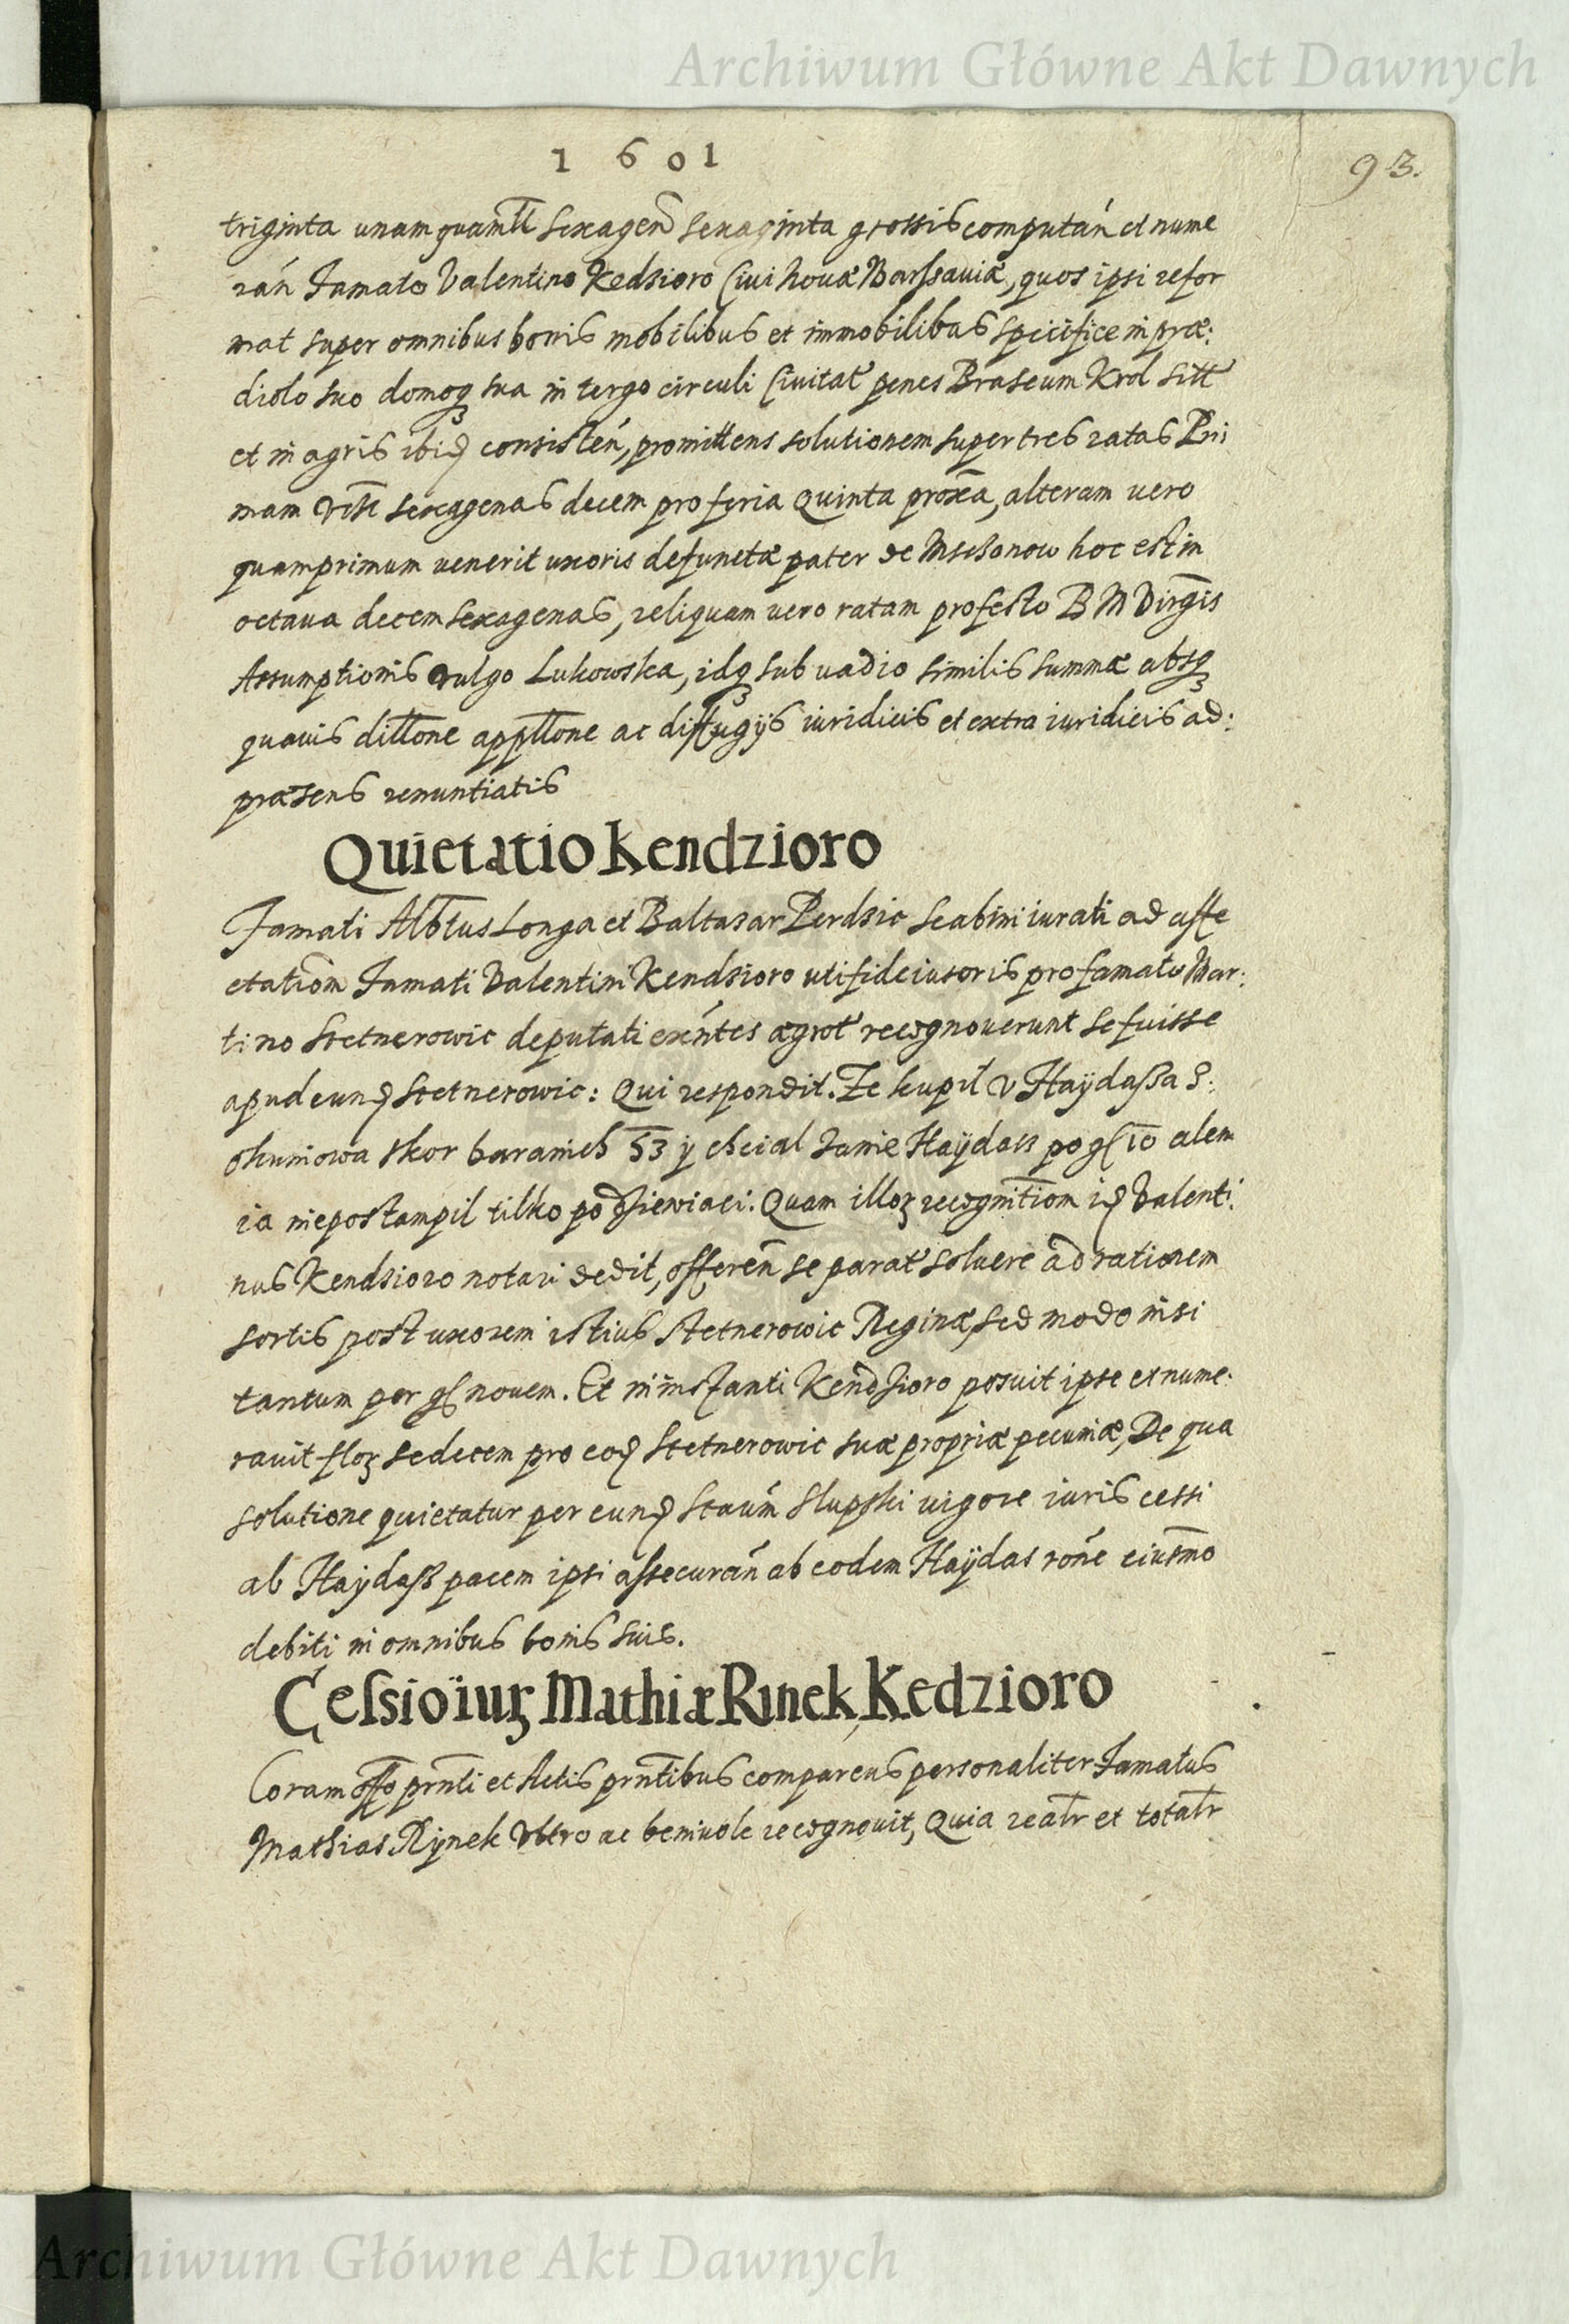 Archiwum Główne Akt Dawnych
1601
93.
triginta unam quamlt sexagen sexaginta grossis computan et nume
ran Famato Valentino Kedzioro Ciui Nouæ Warssauiæ, quos ipsi refor
mat super omnibus bonis mobilibus et immobilibus specifice in præ:
diolo suo domoq sua in tergo circuli Ciuitat penes Braseum Krol sitt
et in agris ibid consisten, promittens solutionem super tres ratas Pri
mam sexagenas decem pro feria quinta proxa, alteram vero
quamprimum venerit uxoris defunctæ pater de Msczonow hoc est in
octaua decem sexagenas, reliquam vero ratam pro festo B M Virgis
Assumptionis vulgo Lukowska, idq sub vadio similis summæ absq
quauis diltone appltone ac diffugijs iuridicis et extra iuridicis ad:
præsens renuntiatis
Quietatio Kendzioro
Famati Albtus Longa et Baltasar Perdzic Scabini iurati ad affe
ctationem Famati Valentini Kendzioro uti fideiusoris pro famato Mar:
tino Stetnerowic deputati exentes ægrot recognouerunt se fuisse
apud eund Stetnerowic: Qui respondit. Ze kupil v Haÿdassa S:
okuniowa skor baranich 53 y chcial zamie Haÿdass po gſ 10 alem
ia niepostampil tilko po dziewiaci. Quam illoꝝ recognitiom id Valenti:
nus Kendzioro notari dedit, offeren se parat soluere ad rationem
sortis post uxorem istius Stetnerowic Reginæ, sed modo nisi
tantum per gſ nouem. Et in instanti Kendzioro posuit ipse et nume:
rauit floꝝ sedecem pro eod Stetnerowic suæ propriæ pecuniæ, De qua
solutione quietatur per eund Staum Slupski uigore iuris cessi
ab Haÿdass pacem ipsi assecuran ab eodem Haÿdas rone eiusmo
debiti in omnibus bonis suis.
Cessio iuꝝ Mathiæ Rinek, Kedzioro
Coram offo prnti et Actis prntibus comparens personaliter Famatus
Mathias Rÿnek Vltro ac beniuole recognouit, Quia realr et totalr
Archiwum Główne Akt Dawnych